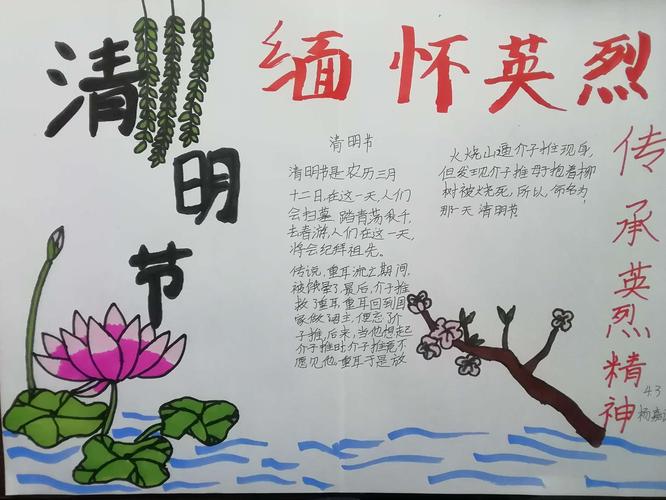 清明节
缅怀英烈
传承英烈精神
清明节
清明节是农历三月
十二日,在这一天,人们
会扫墓 踏青荡秋千,
去春游,人们在这一天,
将会纪拜祖先。
传说,重耳流亡期间,
被饿晕了,最后,介子推
救了重耳,重耳回到国
家做国主,便忘了介
子推,后来,当他想起
介子推时介子推竟不
愿见他,重耳于是放
火烧山逼介子推现身,
但发现介子推母子抱着柳
树被烧死,所以,命名为,
那一天 清明节
43
杨嘉